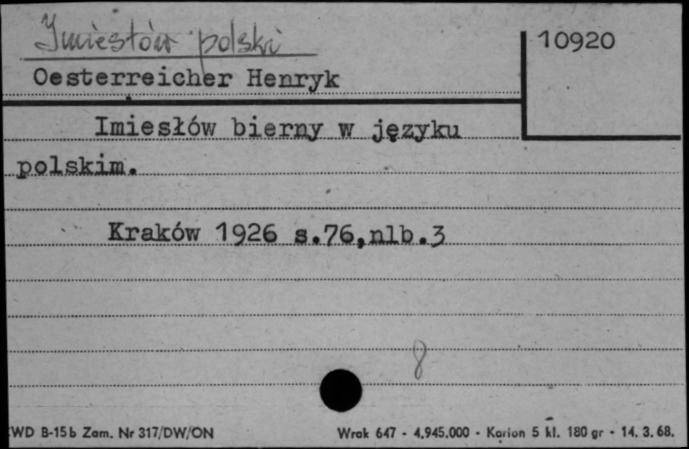 Imiesłów polski
10920
Oesterreicher Henryk
Imiesłów bierny w języku
polskim.
Kraków 1926 s.76,nlb.3
8
WD B-15b Zam. Nr 317/DW/ON
Wrak 647 - 4.945.000 - Karion 5 kl. 180 gr - 14. 3. 68.